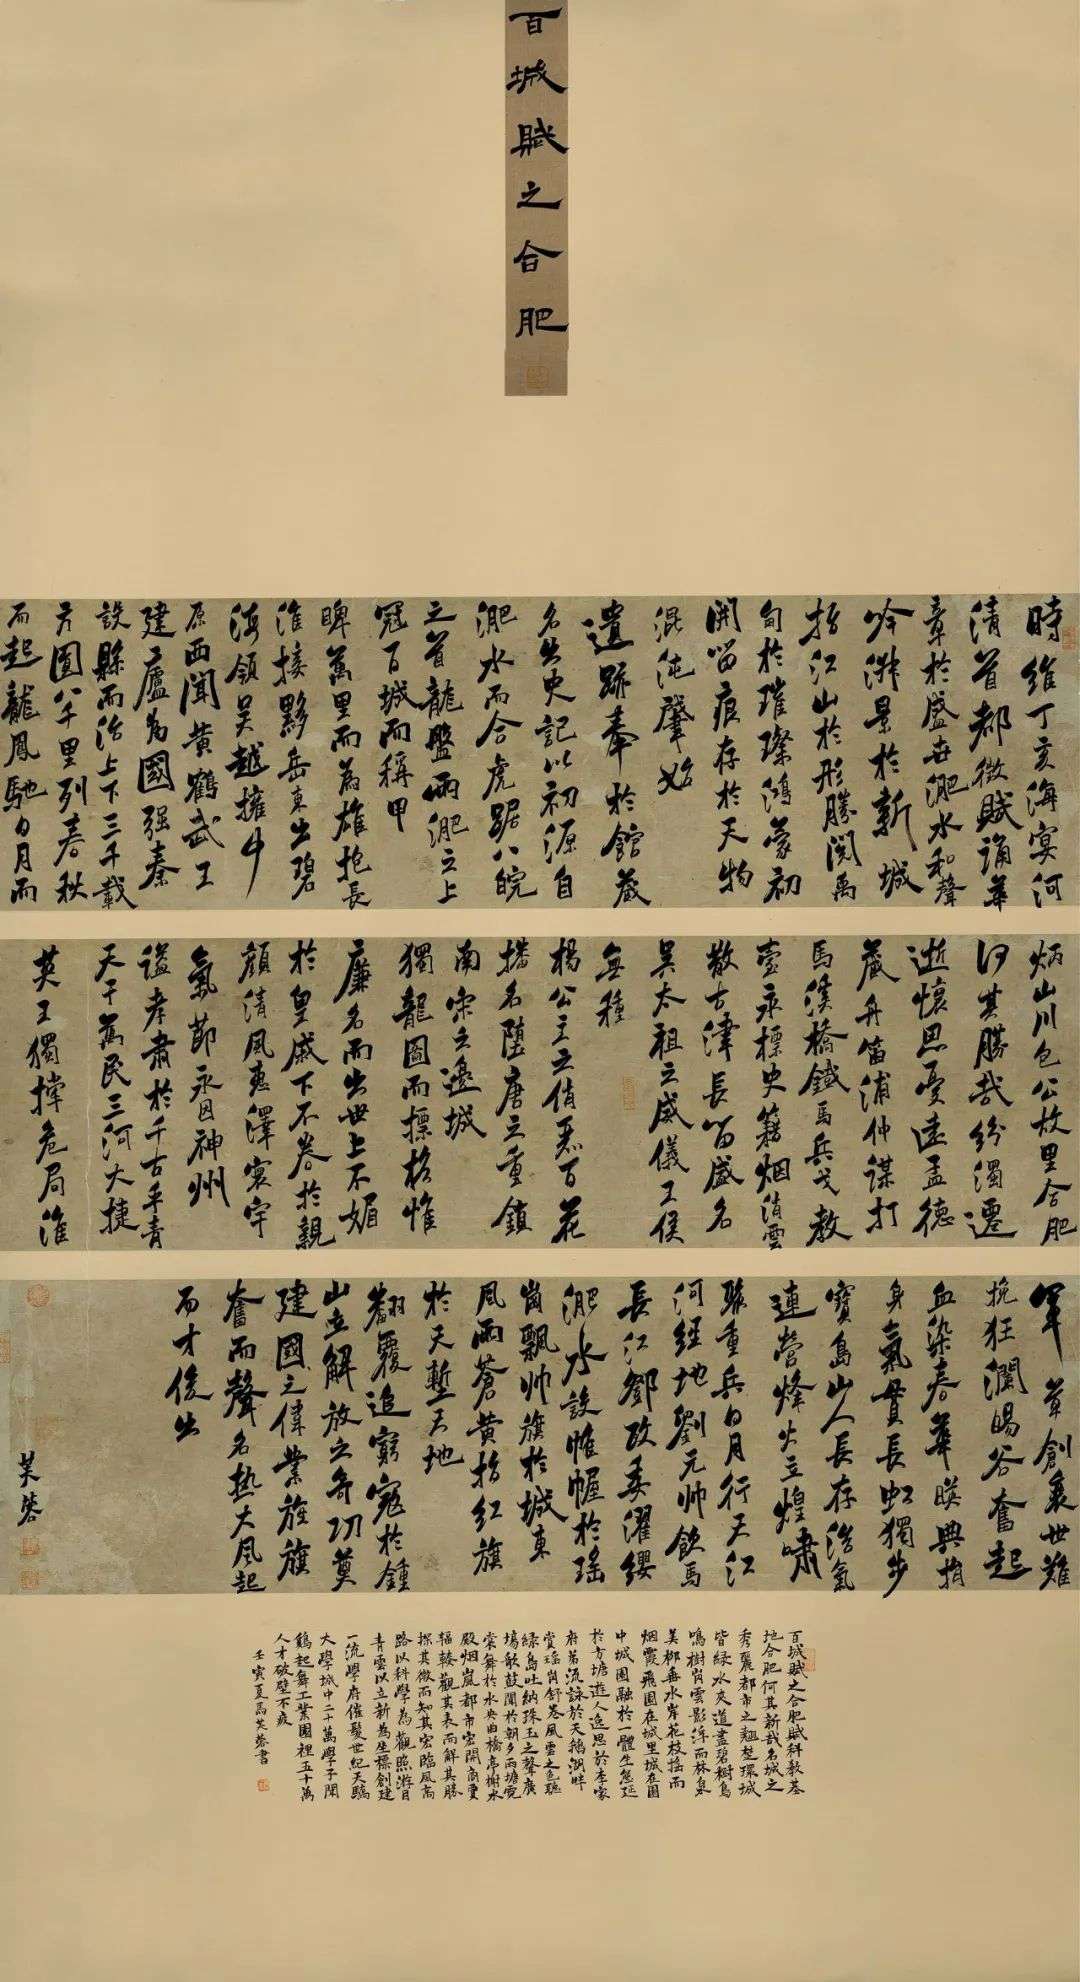 百城賦之合肥
時維丁亥海宴河
清首都徵賦誦華
章於盛世淝水和聲
吟淋景於新城
指江山於形勝閱禹
甸於璀璨鴻蒙初
開留痕存於天物
混沌肇始
遺跡奉於館藏
名出史記以初源自
淝水而合虎踞八皖
之首龍盤兩淝之上
冠百城而稱甲
睥萬里而為雄抱長
淮接黟岳東出碧
海領吳越擁中
原西聞黄鶴武王
建廬為國强秦
設縣而治上下三千載
方圓八千里列春秋
而起龍鳳馳日月而
炳山川包公故里合肥
何其勝哉紛濁遷
逝懷思憂遠孟德
藏舟笛浦仲謀打
馬溪橋鐵馬兵戈教
臺永標史籍烟消雲
散古津長留盛名
吳太祖之威儀王侯
無種
楊公主之俏麗百花
播名隋唐之重鎮
南宋之邊城
獨龍圖而標格惟
廉名而出世上不媚
於皇戚下不眷於親
顏清風惠澤寰宇
氣節永固神州
謚孝肅於千古乎青
天于萬民三河大捷
英王獨撑危局淮
軍草創衰世難
挽狂瀾暘谷奮起
血染春華暎典捐
身氣貫長虹獨步
寶島山人長存浩氣
連營烽火立煌嘯
聚重兵日月行天江
河經地劉元帥飲馬
長江鄧政委濯纓
淝水設帷幄於瑶
崗飄帅旗於城東
風雨蒼黄指紅旗
於天塹天地
翻覆追窮寇於鍾
山立解放之奇功奠
建國之偉業旌旗
奮而聲名熱大風起
而才俊出
芙蓉
百城賦之合肥賦科教基
地合肥何其新哉名城之
秀麗都市之翹楚環城
皆綠水夾道盡碧樹鳥
鳴樹崗雲影浮而林泉
美柳垂水岸花枝摇而
烟霞飛園在城里城在園
中城園融於一體生態延
於方塘遊人逸思於李家
府第流詠於天鵝湖畔
賞瑶崗舒卷風雲之色聽
綠島吐納珠玉之聲廣
場歌鼓鬧於朝夕兩塘霓
裳舞於水央曲橋亭榭水
殿烟嵐都市宏開商賈
輻輳觀其表而解其勝
探其微而知其宏臨風高
路以科學為觀照游目
青雲以立新為坐標創建
一流學府催髮世紀天驕
大學城中二十萬學子聞
鷄起舞工業園裡五十萬
人才破壁不疲
壬寅夏馬芙蓉書